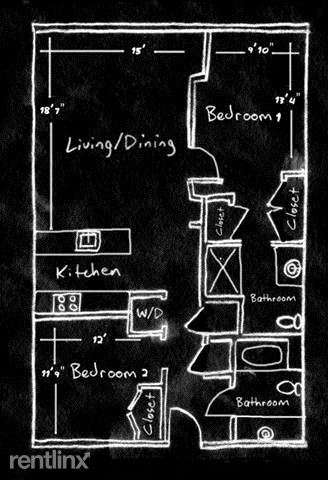 15'
9'10"
18'7"
13'4"
Bedroom 1
Living/Dining
Closet
Closet
Kitchen
Bathroom
W/D
12'
11'9"
Bedroom 2
Closet
Bathroom
rentlinx